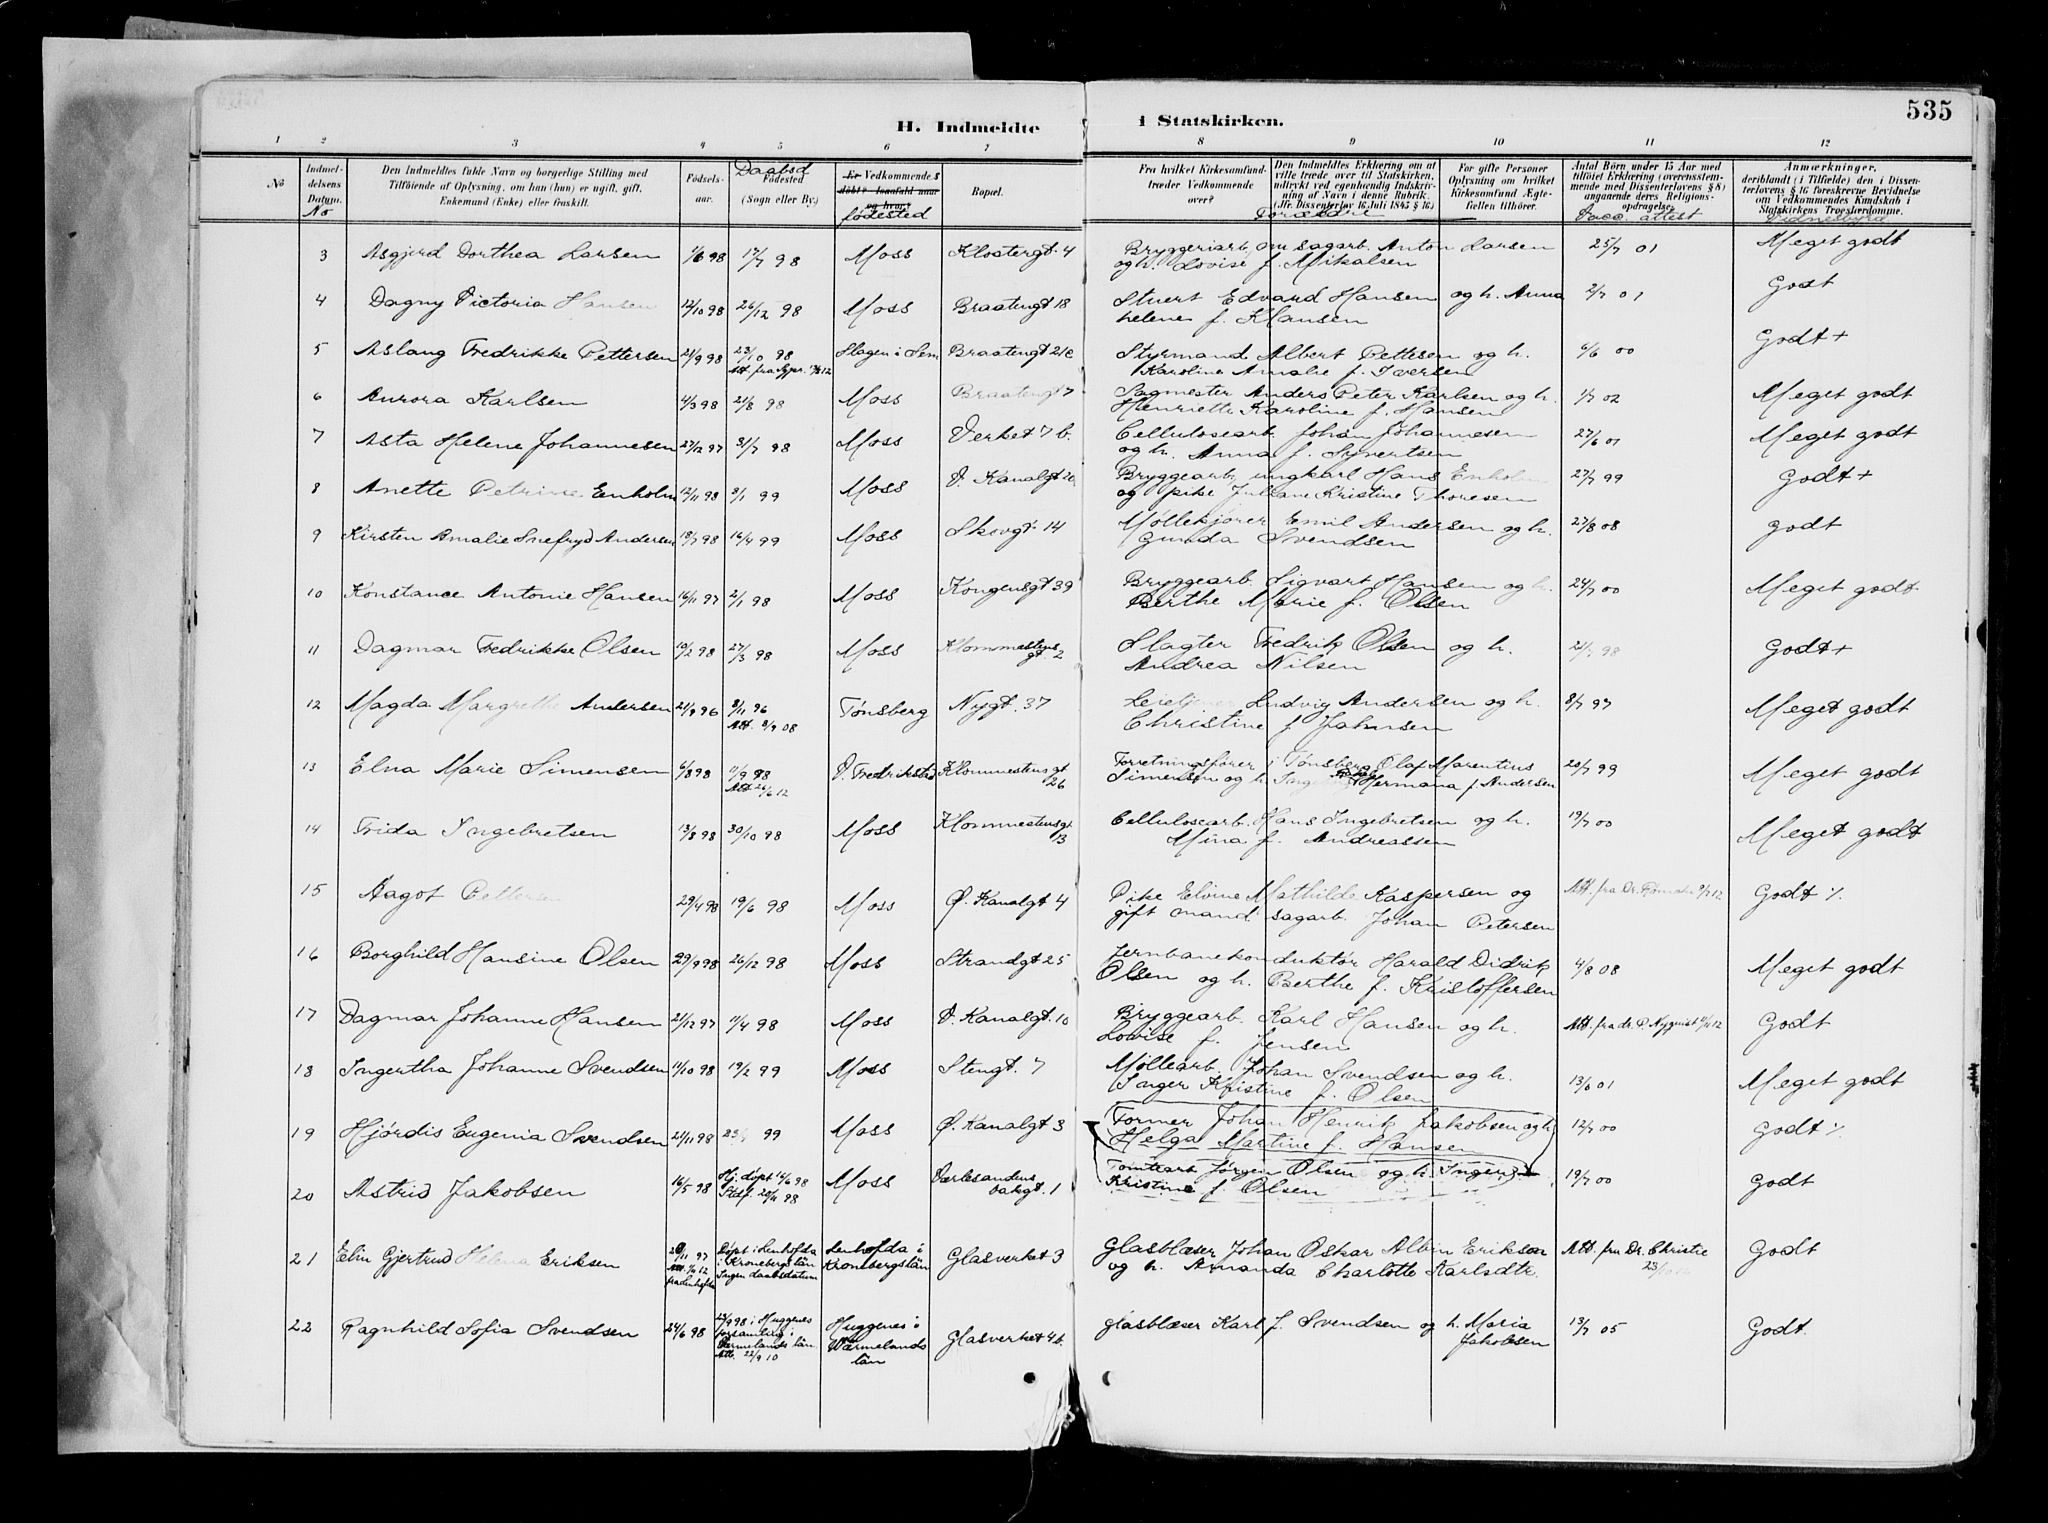 535
H. Indmeldte i Statskirken.
1 2 3 4 5 6 7 8 9 10 11 12
No
Indmel-
delsens
Datum.
No
Den Indmeldtes fulde Navn og borgerlige Stilling med
Tilföiende af Oplysning, om han (hun) er ugift, gift,
Enkemand (Enke) eller fraskilt.
Födsels-
aar.
Daabsd
Födested
(Sogn eller By.)
Er Vedkommende
döbt? Isaafald naar
og hvor?
födested
Bopæl.
Fra hvilket Kirkesamfund
træder Vedkommende
over?
Forældre
Den Indmeldtes Erklæring om at
ville træde over til Statskirken,
udtrykt ved egenhændig Indskriv-
ning af Navn i denne Rubrik.
(Jfr. Dissenterlov 16 Juli 1845 § 16)
For gifte Personer
Oplysning om hvilket
Kirkesamfund Ægte-
fællen tilhører.
Antal Börn under 15 Aar med
tilföiet Erklæring (overensstem-
mende med Dissenterlovens § 8)
angaaende deres Religions-
opdragelse.
Vacc. attest
Anmærkninger,
deriblandt (i Tilfælde) den i Dissen-
terlovens § 16 foreskrevne Bevidnelse
om Vedkommendes Kundskab i
Statskirkens Troeslærdomme.
Vidnesbyrd
3 Asgjerd Dorthea Larsen 1/6 98 17/7 98 Moss Klostergt. 4 Bryggeriarb. om sagarb. Anton Larsen 25/7 01 Meget godt
og h. Lovise f. Mikalsen
4 Dagny Victoria Hansen 12/10 98 26/12 98 Moss Braatengt 18 Stuert Edvard Hansen og h. Anna 2/7 01 Godt
helene f. Klausen
5 Aslaug Fredrikke Pettersen 21/9 98 23/10 98 Slagen i Sem Braatengt 21c Styrmand Albert Pettesen og h. 6/6 00 Godt +
Karoline Amalie f. Iversen
6 Aurora Karlsen 4/3 98 21/8 98 Moss Braatengt 7 Sagmester Anders Peter Karlsen og h. 1/7 02 Meget godt
Henriette Karoline f. Hansen
7 Asta Helene Johannesen 27/12 97 31/7 98 Moss Verket 7 b. Cellulosearb. Johan Johannesen 27/6 01 Meget godt
og h. Anna f. Syvertsen
8 Anette Petrine Enholm 12/11 98 9/1 99 Moss V. Kanalgt 20 Bryggearb, ungkarl Hans Enholm 27/7 99 Godt +
og pike Juliane Kristine Thoresen
9 Kirsten Amalie Snefryd Andersen 18/7 98 16/4 99 Moss Skovgt. 14 Møllekjører Emil Andersen og h. 27/8 08 godt
Gunda Svendsen
10 Konstance Antonie Hansen 16/11 97 2/1 98 Moss Kongensgt 39 Bryggearb. Sigvart Hansen og h. 24/7 00 Meget godt
Berthe Marie f. Olsen
11 Dagmar Fredrikke Olsen 10/2 98 27/3 98 Moss Klommestensgt. 2 Slagter Fredrik Olsen og h. 21/7 98 Godt +
Andrea Nilsen
12 Magda Margrethe Andersen 21/9 96 8/11 96 Tønsberg Nygt. 37 Leietjener Ludvig Andersen og h. 8/7 97 Meget godt
Att. 3/9 08 Christine f Jahnsen
13 Elna Marie Simensen 6/8 98 11/9 98 V. Fredrikstad Klommestensgt 26 Forretningsfører i Tønsberg Olaf Marentius 20/7 99 Meget godt
Att 26/6 12 Simensen og h. Hermana f. Andersen
14 Frida Ingebretsen 13/8 98 30/10 98 Moss Klommestensgt 13 Cellulosearb. Hans Ingebretsen og h. 19/7 00 Meget godt
Mina f. Andreassen
15 Aagot Pettersen 29/4 98 19/6 98 Moss Ø. Kanalgt 4 Pike Elvine Mathilde Kaspersen og Att. fra Dr. Godt ٪
gift mand sagarb. Johan Petersen
16 Borghild Hansine Olsen 29/9 98 26/12 98 Moss Strandgt 25 Jernbanekonduktør Harald Didrik 4/8 08 Meget godt
Olsen og h. Berthe f. Kristoffersen
17 Dagmar Johanne Hansen 21/12 97 11/4 98 Moss V. Kanalgt. 10 Bryggearb. Karl Hansen og h. Att. fra dr. P. Nyquist 11/1 12 Godt
Lovise f. Jensen
18 Ingertha Johanne Svendsen 11/10 98 19/2 99 Moss Stengt. 7 Møllearb. Johan Svendsen og h. 13/6 01 Meget godt
Inger Kristine f. Olsen
19 Hjørdis Eugenia Svendsen 21/11 98 23/ 99 Moss Ø. Kanalgt 3 Former Johan Henrik Jakobsen og h. 12/7 00 Godt ٪
Helga Martine f. Hansen
20 Astrid Jakobsen 16/5 98 Hj. døpt 14/6 98 Moss Værlesandens bakgt. 1 Tomtearb Jørgen Olsen og h. Inger 19/7 00 Godt
Stsf. 20/11 98 Kristine f. Olsen
21 Elin Gjertrud Helena Eriksen 20/11 97 Døpt i Lenhofda Lenhofda i Glasverket 3 Glasblæser Johan Oskar Albin Erikson Att. fra Dr. Christie Godt
i Kronebergslän Kronbergslän og h. Amanda Charlotte Karlsdtr. 23/
Ingen daabsdatum
22 Ragnhild Sofia Svendsen 24/6 98 29/9 98 i Huggenes Huggenes i Glasverket 4b. Glasblæser Karl J. Svendsen og h. Maria 13/7 05 Godt
forsamling i Wærmelands Jakobsen
Vermelands län. län
Att. 22/9 10